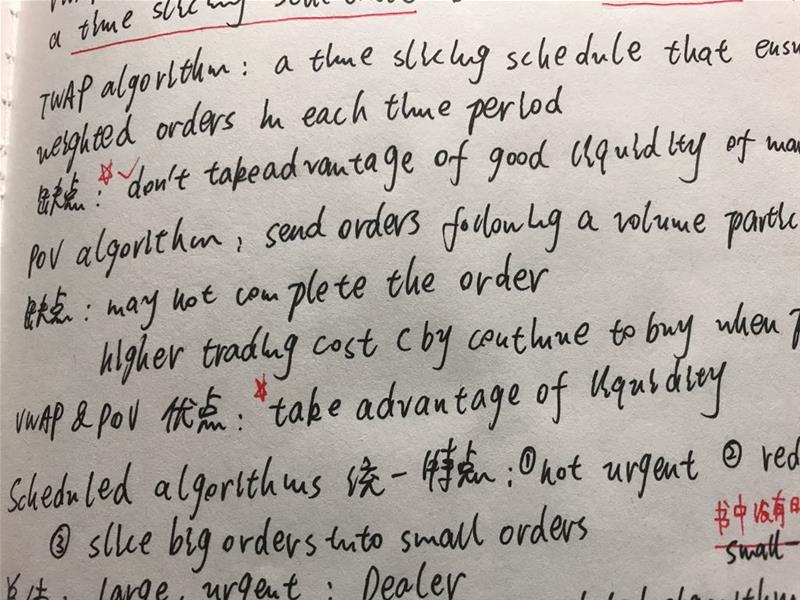 a time slicing
TWAP algorithm: a time slicing schedule that
weighted orders in each time period
缺点: don't take advantage of good liquidity of
POV algorithm, send orders following a volume
缺点: may not complete the order
higher trading cost (by continue to buy when
VWAP & POV 优点: take advantage of liquidity
Scheduled algorithms 统一特点: ① not urgent ②
书中没有
③ slice big orders into small orders
small-
large, urgent: Dealer